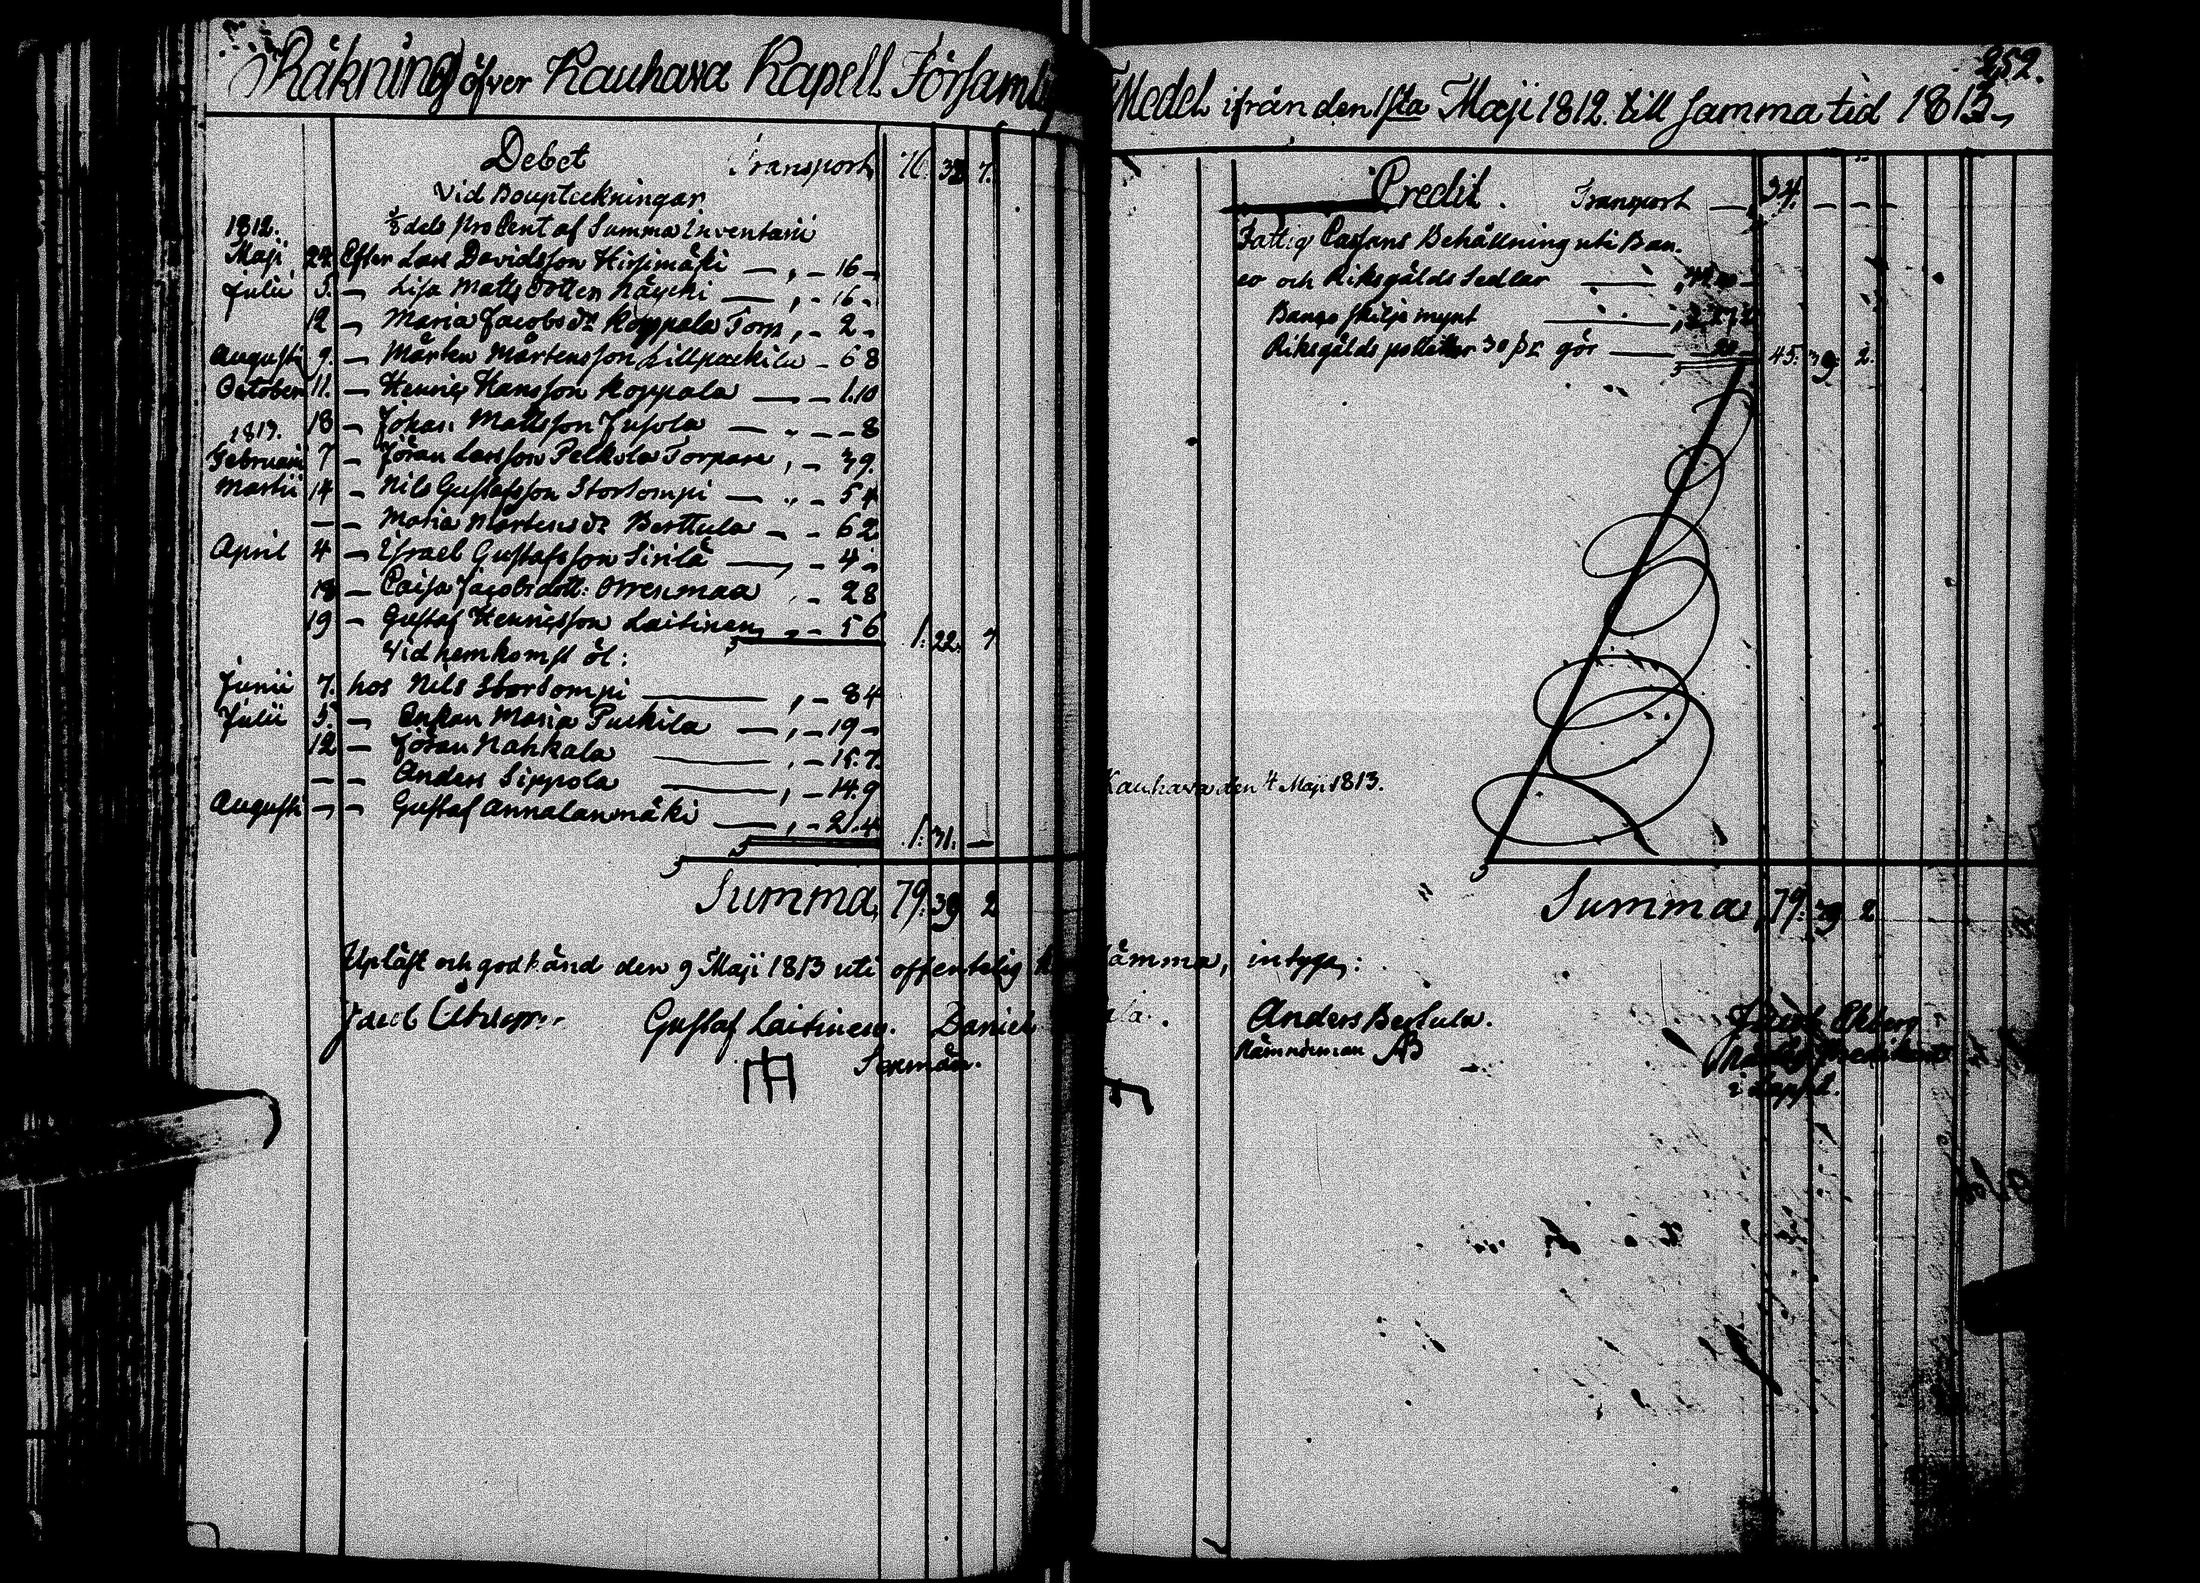 Räkning öfver Kauhava Kapell Församl Medel ifrån den 1sta Maji 1812 till samma tid 1813
252.
Debet Transport 76. 32 7.
Vid Bouptekningar
1812. 1/8 dels pro Cent af Summa Inventarii
Maji 24 Efter Lars Davidsson Hirsimäki — , – 16 –
Julii 5. — Lisa Matts dotter — , – 16 –
12 — Maria Jacobs dr Koppala Torp , – 2 –
Augusti 9. — Mårten Mårtensson Lillpuckila – 6 8
October 11. — Henric Hansson Koppala — – 1.10
18 — Johan Mattsson Jussola — – 8
1813.
Februarii 7 — Jöran Larsson Pelkola Torpare , – 3 9.
Martii 14 — Nils Gustafsson Storsompi — – 5 4
— — Maria Mårtens dr Berttula — – 6 2
April 4 — Israel Gustafsson Sirilä — , – 4 –
18 — Caisa Jacobsdott: Orrenmaa – 2 8
19 — Gustaf Henricsson Laitinen , – 5 6 1: 22. 7
Vid hemkomst öl:
Junii 7. hos Nils Storsompi — , – 8 4
Julii 5. — Enkan Maria Puckila — , – 19 –
12 — Jöran Nahkala — , – 15. 7
— — Anders Sippola — , – 14. 9
Augusti — — Gustaf Annalanmäki — , – 21. 4 1: 31. —
Summa 79. 39 2
Credit. Transport — 34. — — —
Fattig Cassans Behållning uti Ban.
co och Riksgälds Sedlar
Banco skilje mynt
Riksgälds polletter 30 gör 45. 39. 2.
Kauhava den 4 Maji 1813.
Summa 79. 39 2
Upläst och godkänd den 9 Maji 1813 uti offentelig ämma, intyga:
Jacob Gustaf Laitinen. Daniel la. Anders Bertula. Jacob Ekberg
Sexmän. Nämndeman AB Predikant
i Lappo.